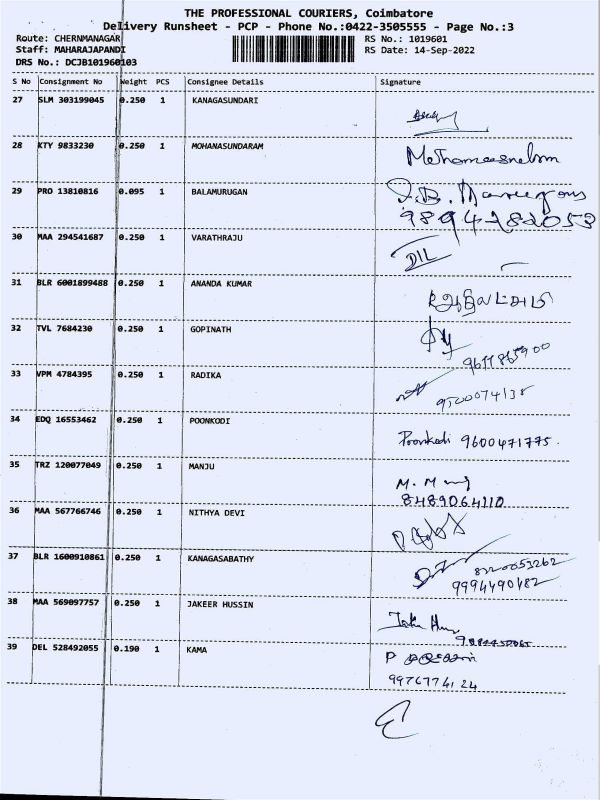 THE PROFESSIONAL COURIERS, Coimbatore
Delivery Runsheet - PCP - Phone No.:0422-3505555 - Page No.:3
Route: CHERNMANAGAR RS No.: 1019601
Staff: MAHARAJAPANDI RS Date: 14-Sep-2022
DRS No.: DCJB101960103
S No Consignment No Weight PCS Consignee Details Signature
27 SLM 303199045 0.250 1 KANAGASUNDARI
28 KTY 9833230 0.250 1 MOHANASUNDARAM
29 PRO 13810816 0.095 1 BALAMURUGAN
30 MAA 294541687 0.250 1 VARATHRAJU
31 BLR 6001899488 0.250 1 ANANDA KUMAR
32 TVL 7684230 0.250 1 GOPINATH
33 VPM 4784395 0.250 1 RADIKA
34 EDQ 16553462 0.250 1 POONKODI Poonkodi 9600471775.
35 TRZ 120077049 0.250 1 MANJU
8489064110
36 MAA 567766746 0.250 1 NITHYA DEVI
37 BLR 1600910861 0.250 1 KANAGASABATHY 8220053262
9994490482
38 MAA 569097757 0.250 1 JAKEER HUSSIN
39 DEL 528492055 0.190 1 KAMA
9976774124